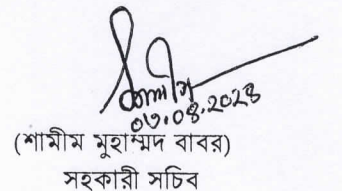 ০৩.০৪.২০২৪
(শামীম মুহাম্মদ বাবর)
সহকারী সচিব